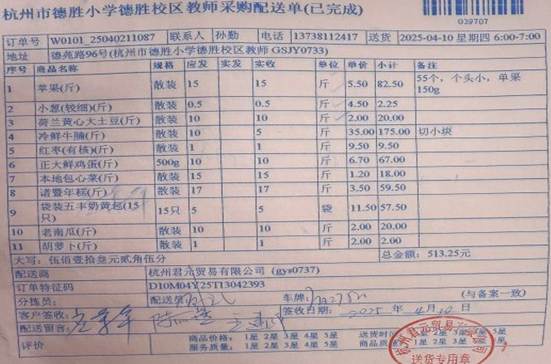 杭州市德胜小学德胜校区教师采购配送单(已完成)
039707
订单号 W0101_25040211087 联系人 孙勤 电话 13738112417 送货 2025-04-10 星期四 6:00-7:00
地址 德苑路96号(杭州市德胜小学德胜校区教师 GSJY0733)
序号 商品名称 规格 应发 实发 实收 单位 单价 小计 备注
1 苹果(斤) 散装 15 15 斤 5.50 82.50 55个,个头小,单果150g
2 小葱(较细)(斤) 散装 0.5 0.5 斤 4.50 2.25
3 荷兰黄心大土豆(斤) 散装 10 10 斤 2.00 20.00
4 冷鲜牛腩(斤) 散装 10 5 斤 35.00 175.00 切小块
5 红枣(有核)(斤) 散装 1 1 斤 9.50 9.50
6 正大鲜鸡蛋(斤) 500g 10 10 斤 6.70 67.00
7 本地包心菜(斤) 散装 15 15 斤 1.20 18.00
8 诸暨年糕(斤) 散装 17 17 斤 3.50 59.50
9 袋装五丰奶黄包(15只) 15只 5 5 袋 11.50 57.50
10 老南瓜(斤) 散装 10 10 斤 2.00 20.00
11 胡萝卜(斤) 散装 1 1 斤 2.00 2.00
大写:伍佰壹拾叁元贰角伍分 总金额: 513.25元
配送商 杭州君元贸易有限公司 (gys0737)
订单特征码 D10M04Y25T13042393
分拣员: 配送员 车牌: (与备案一致)
客户签收: 签收日期: 2025年4月10日
配送留言:
评价 商品价格: 1星 2星 3星 4星 5星 送货时间: 1星 2星 3星 4星 5星
服务质量: 1星 2星 3星 4星 5星
送货专用章